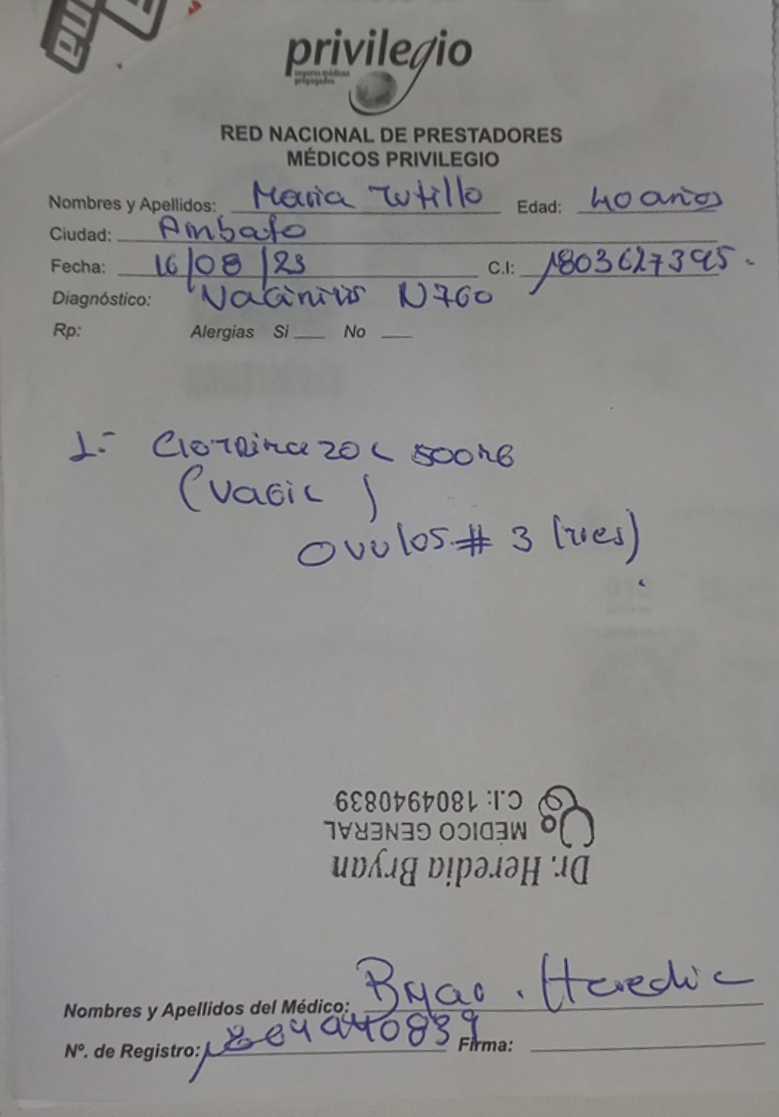 privilegio
seguros médicos
prepagados
RED NACIONAL DE PRESTADORES
MÉDICOS PRIVILEGIO
Nombres y Apellidos: Maria Tutillo Edad: 40 años
Ciudad: Ambato
Fecha: 16/08/23 C.I: 1803627395.
Diagnóstico: Vaginitis N760
Rp: Alergias Si ___ No ___
1.- Clotrimazol 500mg
(Vagil)
Ovulos # 3 (tres).
Dr. Heredia Bryan
MÉDICO GENERAL
C.I: 1804940839
Nombres y Apellidos del Médico: Bryan. Heredia
Nº. de Registro: 1804940839 Firma: